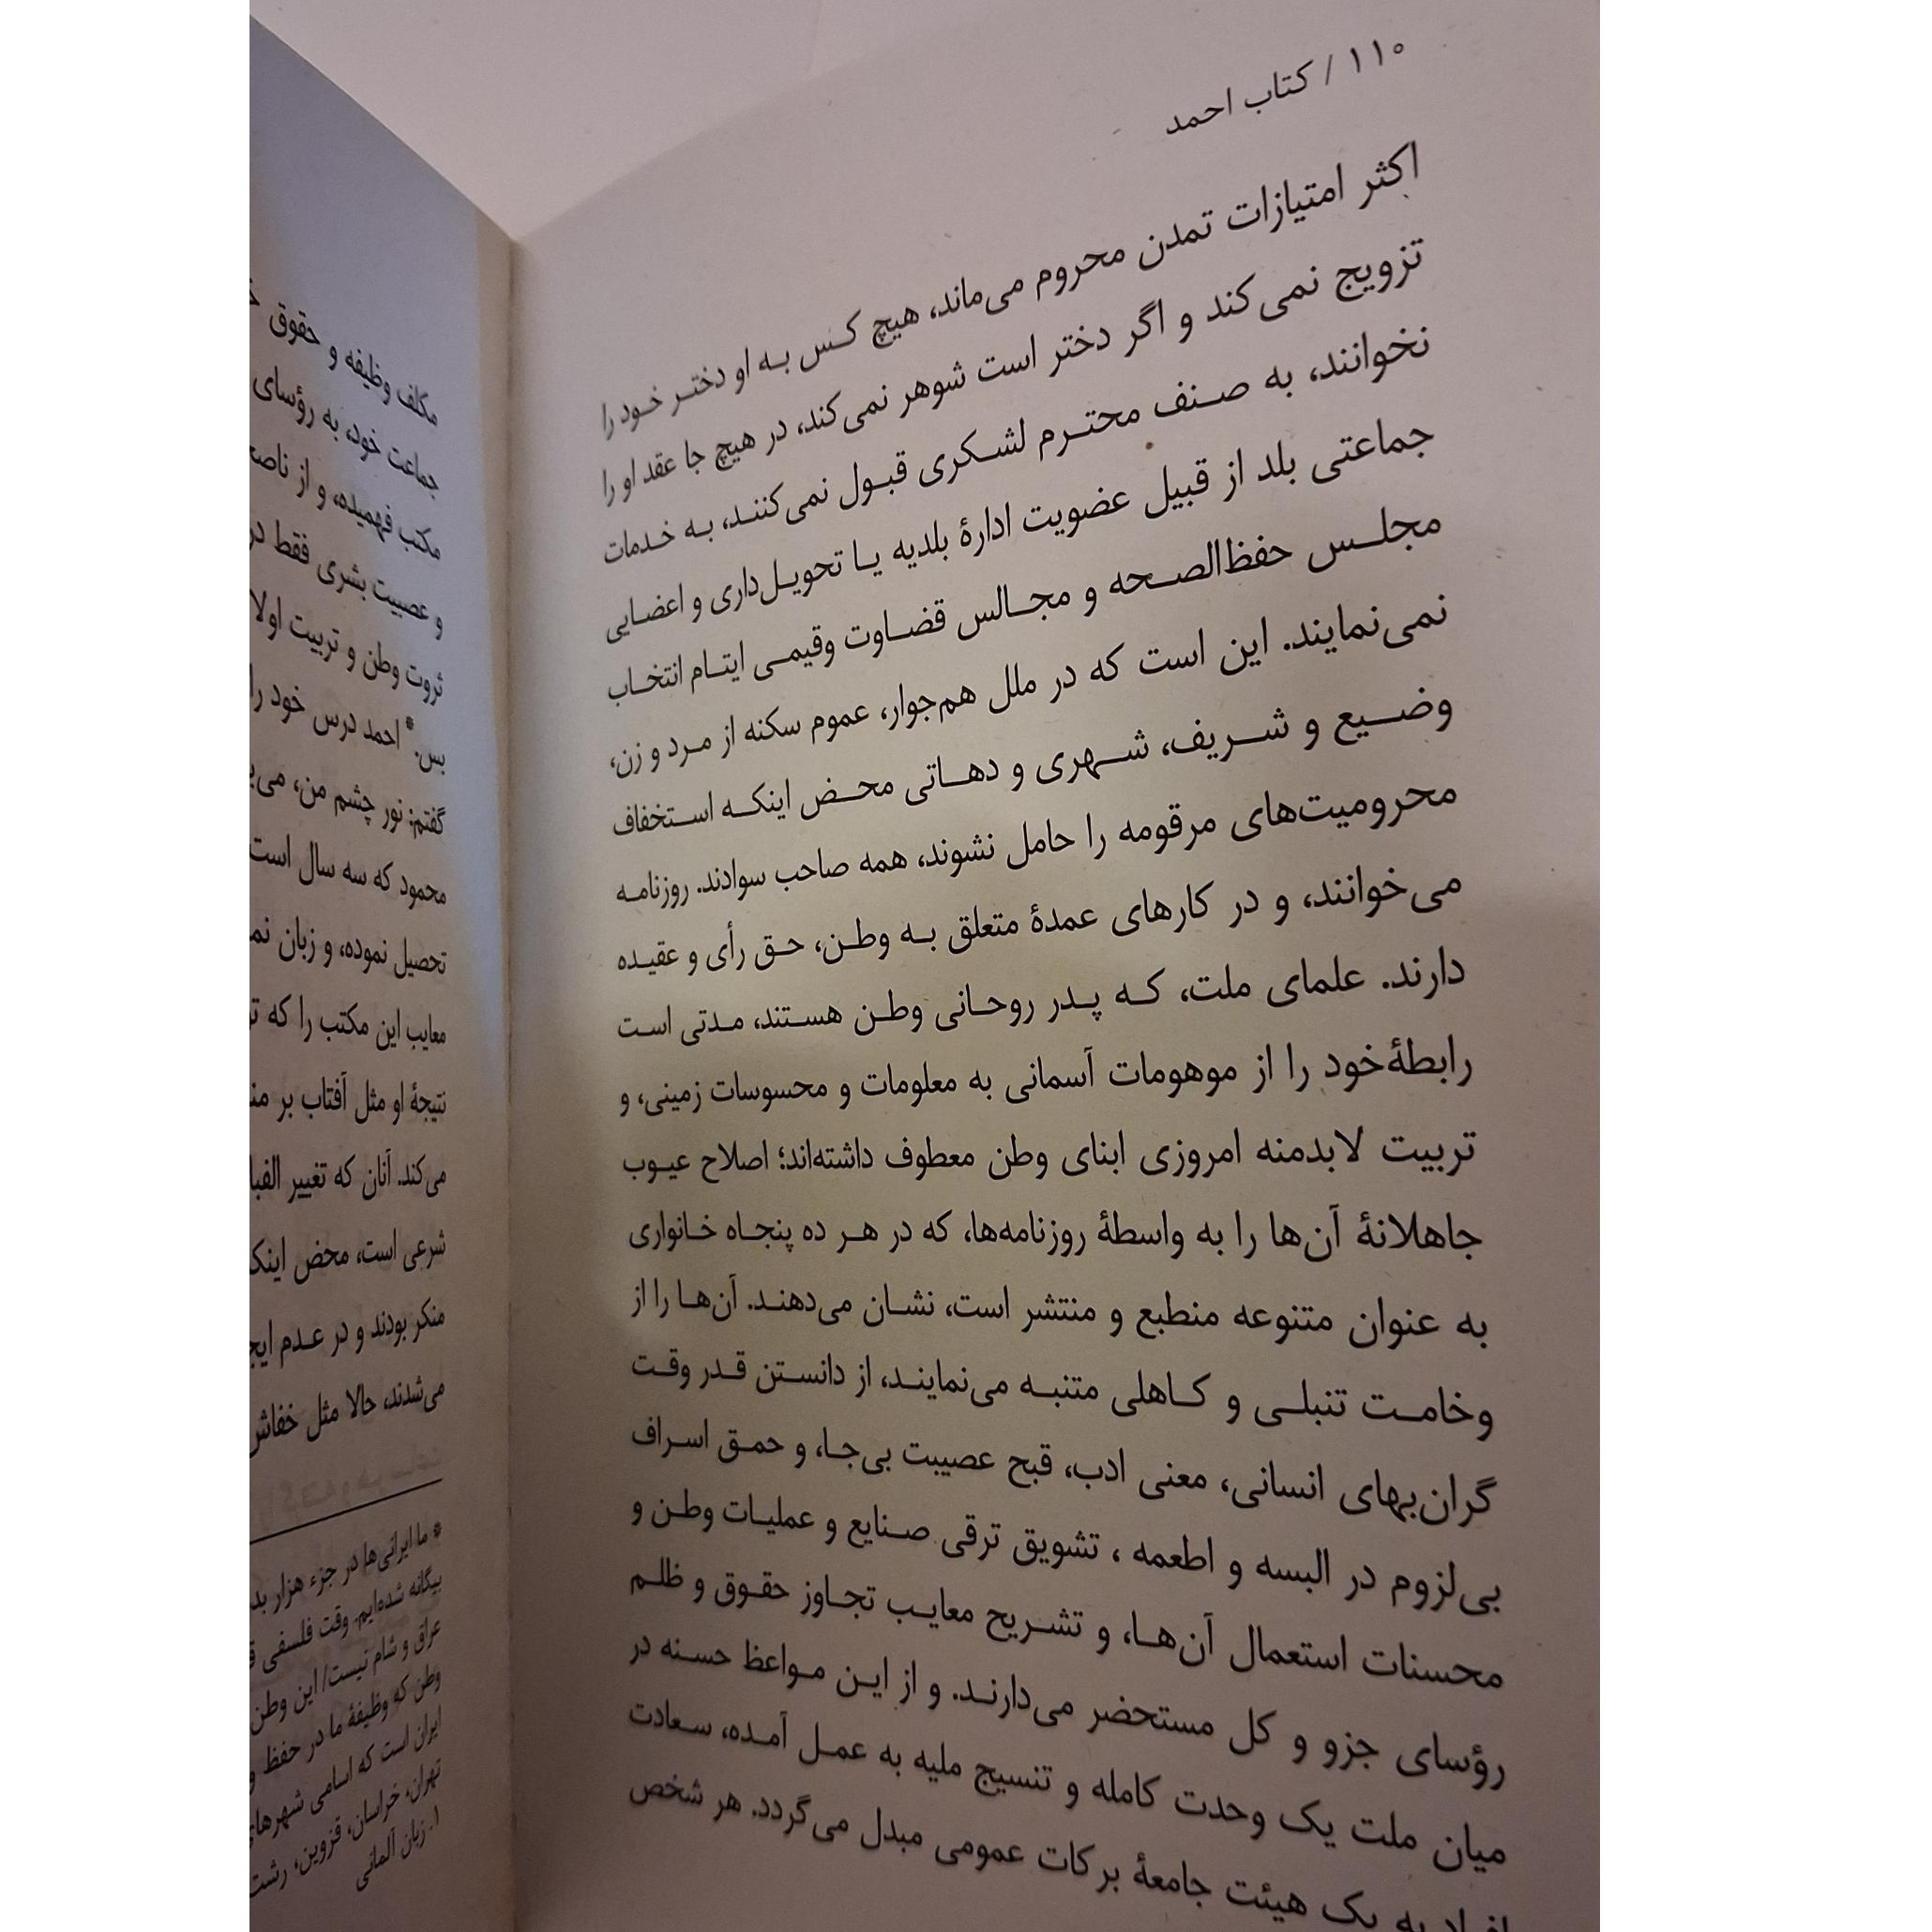 ۱۱۰ / کتاب احمد
اکثر امتیازات تمدن محروم می‌ماند، هیچ کس به او دختر خود را
تزویج نمی‌کند و اگر دختر است شوهر نمی‌کند، در هیچ جا عقد او را
نخوانند، به صنف محترم لشکری قبول نمی‌کنند، به خدمات
جماعتی بلد از قبیل عضویت ادارهٔ بلدیه یا تحویل‌داری و اعضایی
مجلس حفظ‌الصحه و مجالس قضاوت وقیمی ایتام انتخاب
نمی‌نمایند. این است که در ملل هم‌جوار، عموم سکنه از مرد و زن،
وضیع و شریف، شهری و دهاتی محض اینکه استخفاف
محرومیت‌های مرقومه را حامل نشوند، همه صاحب سوادند. روزنامه
می‌خوانند، و در کارهای عمدهٔ متعلق به وطن، حق رأی و عقیده
دارند. علمای ملت، که پدر روحانی وطن هستند، مدتی است
رابطهٔ‌خود را از موهومات آسمانی به معلومات و محسوسات زمینی، و
تربیت لابدمنه امروزی ابنای وطن معطوف داشته‌اند؛ اصلاح عیوب
جاهلانهٔ آن‌ها را به واسطهٔ روزنامه‌ها، که در هر ده پنجاه خانواری
به عنوان متنوعه منطبع و منتشر است، نشان می‌دهند. آن‌ها را از
وخامت تنبلی و کاهلی متنبه می‌نمایند، از دانستن قدر وقت
گران‌بهای انسانی، معنی ادب، قبح عصبیت بی‌جا، و حمق اسراف
بی‌لزوم در البسه و اطعمه ، تشویق ترقی صنایع و عملیات وطن و
محسنات استعمال آن‌ها، و تشریح معایب تجاوز حقوق و ظلم
رؤسای جزو و کل مستحضر می‌دارند. و از این مواعظ حسنه در
میان ملت یک وحدت کامله و تنسیج ملیه به عمل آمده، سعادت
افراد به یک هیئت جامعهٔ برکات عمومی مبدل می‌گردد. هر شخص
مکلف وظیفه و حقوق
جماعت خود، به رؤسای
مکتب فهمیده، و از
و عصبیت بشری فقط در
ثروت وطن و تربیت
بس.* احمد درس خود را
گفتم: نور چشم من،
محمود که سه سال است
تحصیل نموده، و زبان
معایب این مکتب را که
نتیجهٔ او مثل آفتاب بر
می‌کند. آنان که تغییر
شرعی است، محض
منکر بودند و در عدم
می‌شدند، حالا مثل خفاش
* ما ایرانی‌ها در جزء هزار
بیگانه شده‌ایم. وقت فلسفی
عراق و شام نیست/ این وطن
وطن که وظیفهٔ ما در حفظ
ایران است که اسامی شهرهای
تهران، خراسان، قزوین، رشت
۱. زبان آلمانی